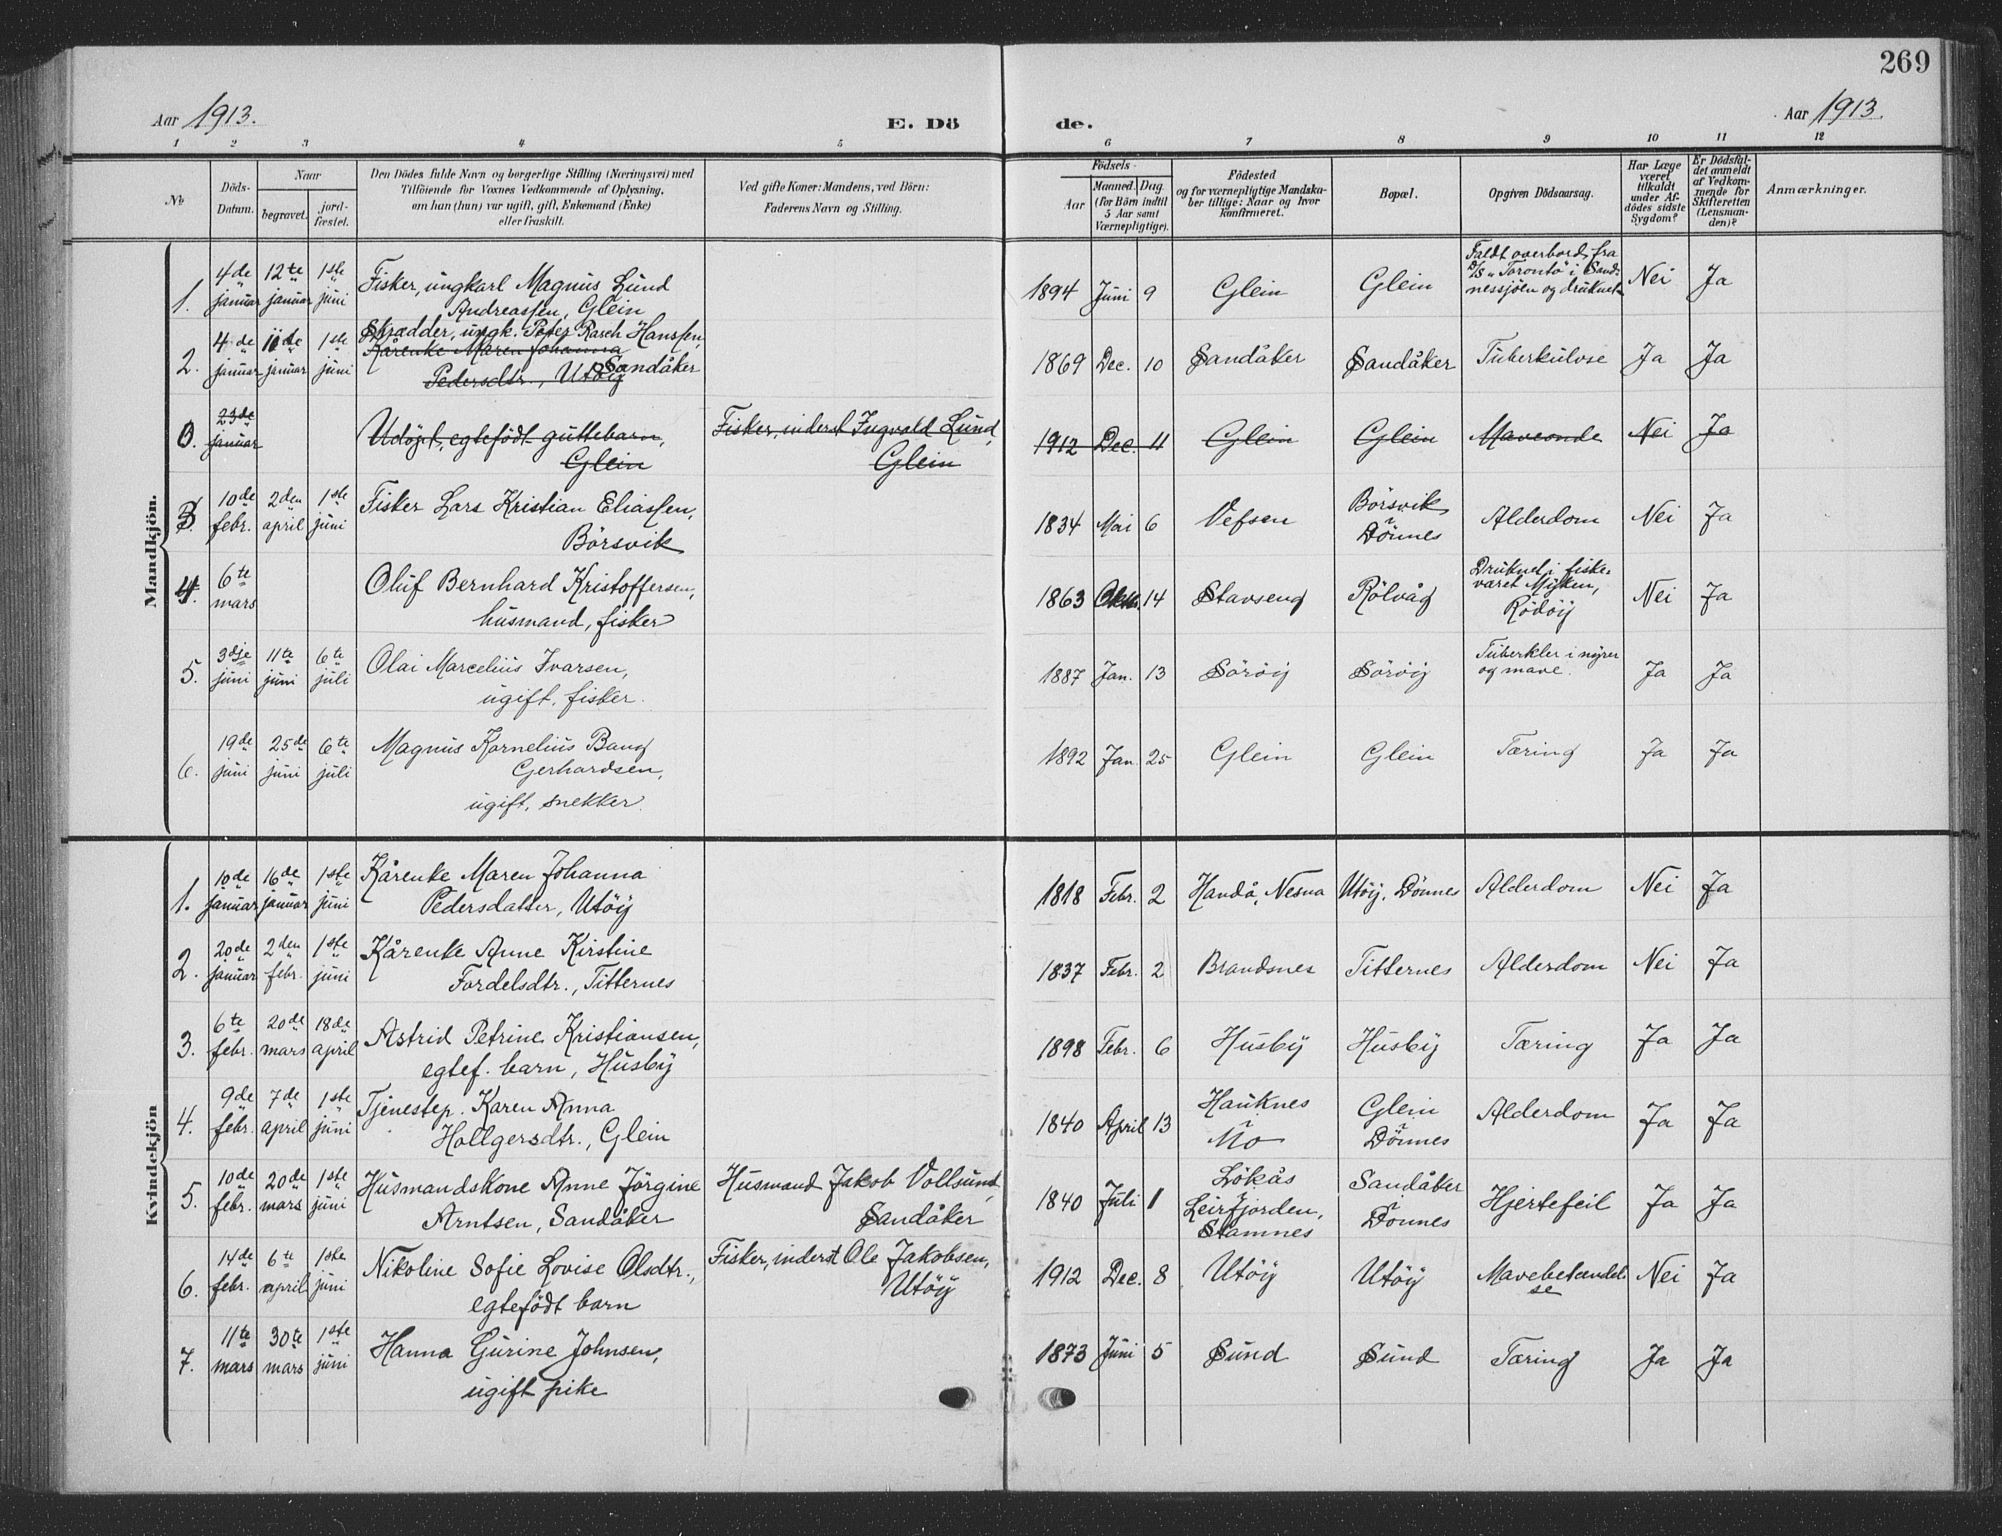 269
Aar 1913.
E. Dö
de.
Aar 1913.
1 2 3 4 5 6 7 8 9 10 11 12
№
Döds-
Datum.
Naar
begravet.
jord-
fæstet.
Den Dödes fulde Navn og borgerlige Stilling (Næringsvei) med
Tilföiende for Voxnes Vedkommende af Oplysning,
om han (hun) var ugift, gift, Enkemand (Enke)
eller fraskilt.
Ved gifte Koner: Mandens, ved Börn:
Faderens Navn og Stilling.
Födsels-
Aar
Maaned. Dag.
(for Börn indtil
5 Aar samt
Værnepligtige).
Födested
og for værnepligtige Mandska-
ber tillige: Naar og hvor
konfirmeret.
Bopæl.
Opgiven Dödsaarsag.
Har Læge
været
tilkaldt
under Af-
dödes sidste
Sygdom?
Er Dödsfal-
det anmeldt
af Vedkom-
mende for
Skifteretten
(Lensman-
den)?
Anmærkninger.
Mandkjön.
1. 4de januar 12te januar 1ste juni
Fisker, ungkarl Magnus Lund
Andreassen, Glein
1894 Juni 9 Glein Glein
Faldt overbord fra
D/S "Toronto" i Sand-
nessjöen og druknet
Nei Ja
2. 4de januar 11te januar 1ste juni
Skrædder, ungk. Peter Rasch Hanssen,
Kårenke Maren Johanna
Sandåker
Pedersdtr., Utöy
1869 Dec. 10 Sandåker Sandåker Tuberkulose Ja Ja
0. 23de januar
Udöpt, egtefödt guttebarn,
Glein
Fisker, inderst Ingvald Lund,
Glein
1912 Dec. 11 Glein Glein Maveonde Nei Ja
3. 10de febr. 2den april 1ste juni
Fisker Lars Kristian Eliassen,
Börsvik
1834 Mai 6 Vefsen
Börsvik
i
Dönnes
Alderdom Nei Ja
4. 6te mars
Oluf Bernhard Kristoffersen,
husmand, fisker
1863 Oktb. 14 Stavseng Rölvåg
Druknet i fiske-
været Myken,
Rödöy
Nei Ja
5. 3dje juni 11te juni 6te juli
Olai Marcelius Ivarsen,
ugift, fisker.
1887 Jan. 13 Söröy Söröy
Tuberkler i nyrer
og mave.
Ja Ja
6. 19de juni 25de juni 6te juli
Magnus Kornelius Bang
Gerhardsen,
ugift, snekker.
1892 Jan. 25 Glein Glein Tæring Ja Ja
Kvindekjön
1. 10de januar 16de januar 1ste juni
Kårenke Maren Johanna
Pedersdatter, Utöy
1818 Febr. 2 Handå, Nesna Utöy, Dönnes Alderdom Nei Ja
2. 20de januar 2den febr. 1ste juni
Kårenke Anne Kirstine
Fordelsdtr., Titternes
1837 Febr. 2 Brandsnes Titternes Alderdom Nei Ja
3. 6te febr. 20de mars 18de april
Astrid Petrine Kristiansen,
egtef. barn, Husby
1898 Febr. 6 Husby Husby Tæring Ja Ja
4. 9de febr. 7de april 1ste juni
Tjenestep. Karen Anna
Hollgersdtr., Glein
1840 April 13
Hauknes
i
Mo
Glein
i
Dönnes
Alderdom Ja Ja
5. 10de febr. 20de mars 1ste juni
Husmandskone Anne Jörgine
Arntsen, Sandåker
Husmand Jakob Vollsund,
Sandåker
1840 Juli 1
Lökås
Leirfjorden,
Stamnes
Sandåker
i
Dönnes
Hjertefeil Ja Ja
6. 14de febr. 6te april 1ste juni
Nikoline Sofie Lovise Olsdtr.,
egtefödt barn
Fisker, inderst Ole Jakobsen,
Utöy
1912 Dec. 8 Utöy Utöy
Mavebetændel-
se
Nei Ja
7. 11te mars 30te mars 1ste juni
Hanna Gurine Johnsen,
ugift pike
1873 Juni 5 Sund Sund Tæring Ja Ja